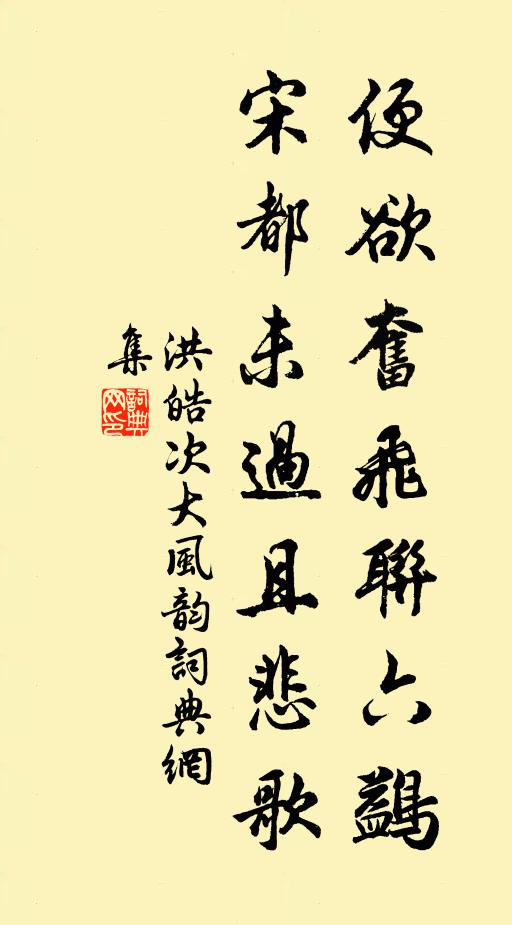 便欲奮飛聯六鷁
宋都未過且悲歌
洪皓次大風韵詞典網
集
詞典网印